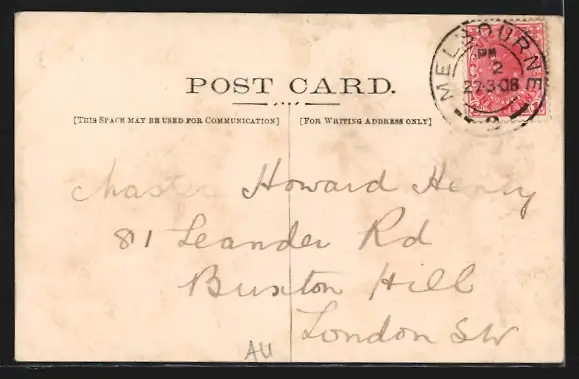 POST CARD.
[THIS SPACE MAY BE USED FOR COMMUNICATION] [FOR WRITING ADDRESS ONLY]
MELBOURNE
PM
2
27·3·08
2
Master Howard Henry
81 Leander Rd
Buxton Hill
London SW
AU